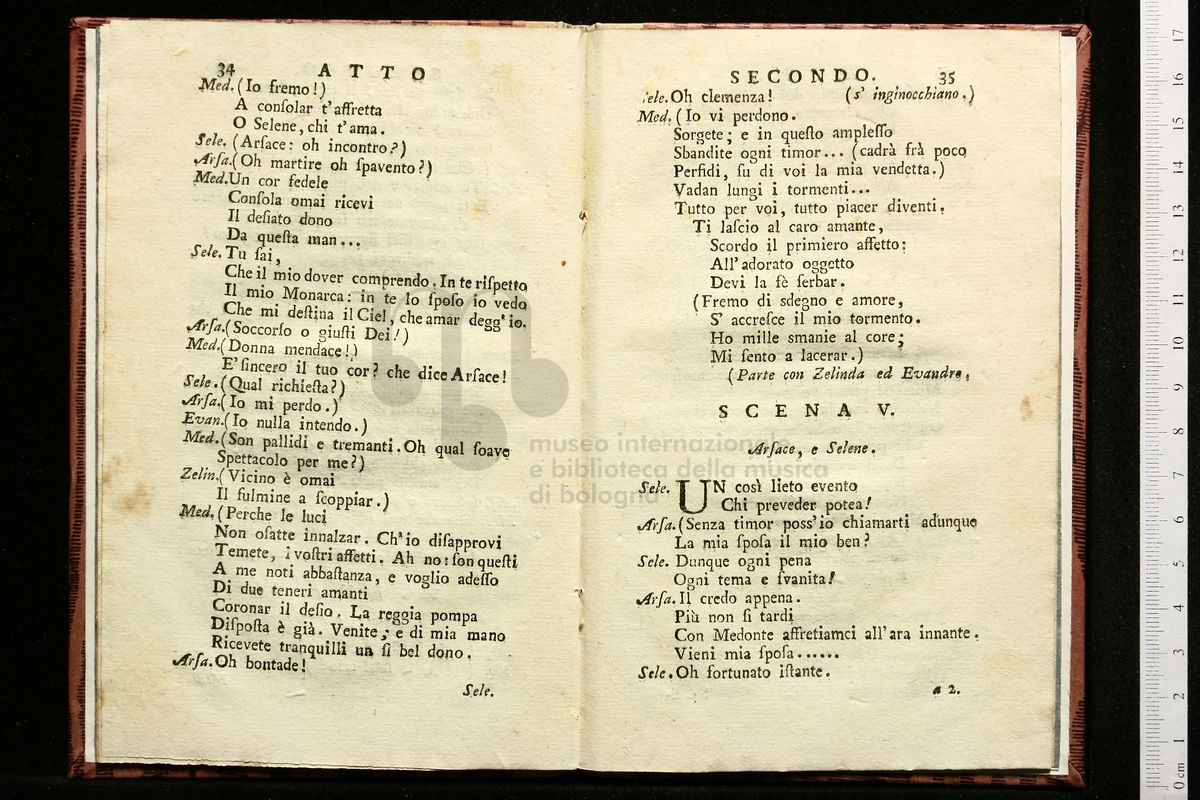 34 ATTO
Med. (Io fremo!)
A conſolar t'affretta
O Selene, chi t'ama.
Sele. (Arſace: oh incontro?)
Arſa. (Oh martire oh ſpavento?)
Med. Un cor fedele
Conſola omai ricevi
Il deſiato dono
Da queſta man...
Sele. Tu ſai,
Che il mio dover comprendo. In te riſpetto
Il mio Monarca: in te lo ſpoſo io vedo
Che mi deſtina il Ciel, che amar degg'io.
Arſa. (Soccorſo o giuſti Dei!)
Med. (Donna mendace!)
E' ſincero il tuo cor? che dice Arſace!
Sele. (Qual richieſta?)
Arſa. (Io mi perdo.)
Evan. (Io nulla intendo.)
Med. (Son pallidi e tremanti. Oh qual ſoave
Spettacolo per me?)
Zelin. (Vicino è omai
Il fulmine a ſcoppiar.)
Med. (Perche le luci
Non oſatte innalzar. Ch'io diſapprovi
Temete, i voſtri affetti. Ah no: ſon queſti
A me noti abbaſtanza, e voglio adeſſo
Di due teneri amanti
Coronar il deſio. La reggia pompa
Diſpoſta è già. Venite, e di mia mano
Ricevete tranquilli un ſi bel dono.
Arſa. Oh bontade!
Sele.
SECONDO. 35
Sele. Oh clemenza! (s' inginocchiano.)
Med. (Io vi perdono.
Sorgete; e in queſto ampleſſo
Sbandite ogni timor... (cadrà frà poco
Perfidi, ſu di voi la mia vendetta.)
Vadan lungi i tormenti...
Tutto per voi, tutto piacer diventi.
Ti laſcio al caro amante,
Scordo il primiero affetto:
All'adorato oggetto
Devi la fè ſerbar.
(Fremo di sdegno e amore,
S' accreſce il mio tormento.
Ho mille smanie al core;
Mi ſento a lacerar.)
(Parte con Zelinda ed Evandro.
SCENA V.
Arſace, e Selene.
Sele. UN così lieto evento
Chi preveder potea!
Arſa. (Senza timor poss'io chiamarti adunque
La mia ſpoſa il mio ben?
Sele. Dunque ogni pena
Ogni tema e ſvanita!
Arſa. Il credo appena.
Più non ſi tardi
Con Medonte affretiamci all'ara innante.
Vieni mia ſpoſa......
Sele. Oh fortunato iſtante.
a 2.
museo internazionale
e biblioteca della musica
di bologna
0 cm 1 2 3 4 5 6 7 8 9 10 11 12 13 14 15 16 17